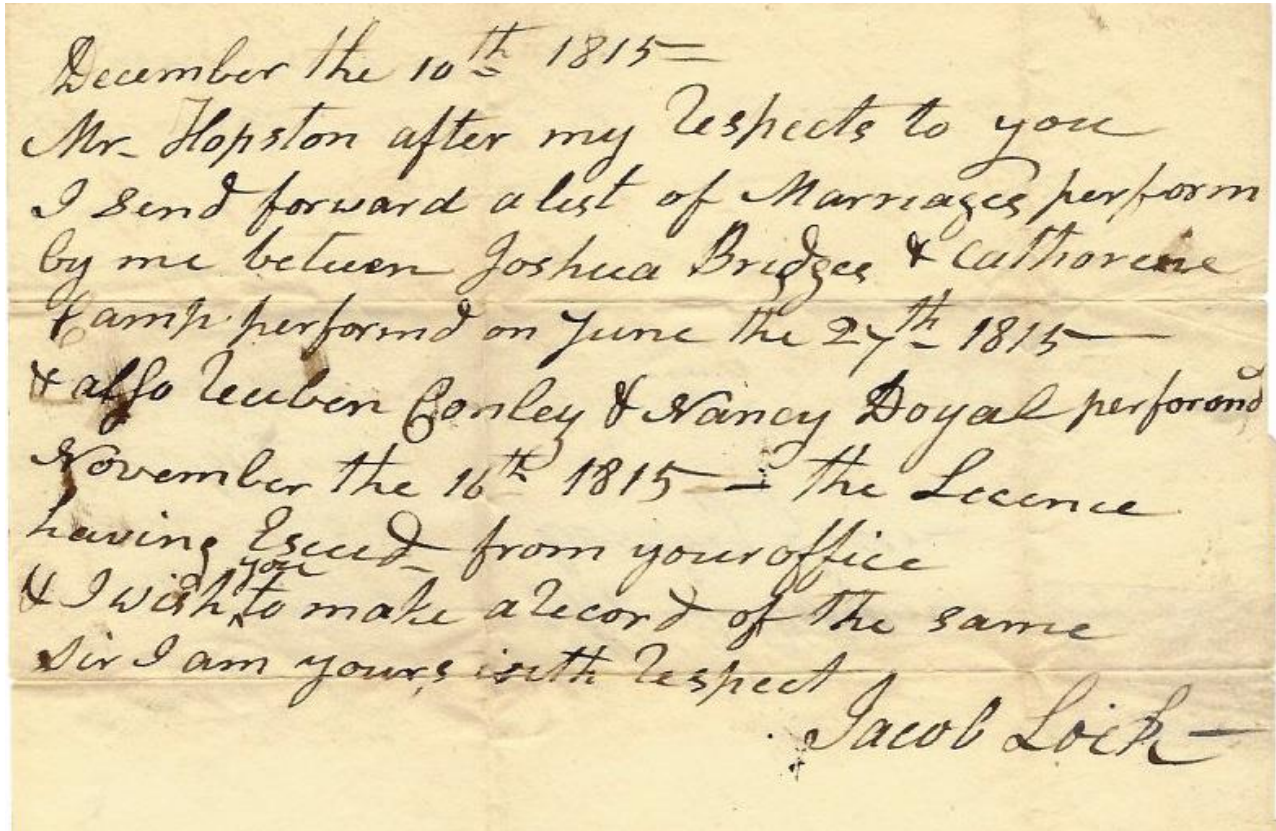 December the 10th 1815
Mr. Hopston after my respects to you
I send forward a list of Marriages perform
by me between Joshua Bridges & Cathorine
Camp performd on June the 27th 1815
& also reuben Conley & Nancy Doyal performd
November the 16th 1815 – the Licence
having Esued from your office
& I wish you to make a record of the same
Sir I am yours with respect
Jacob Lock